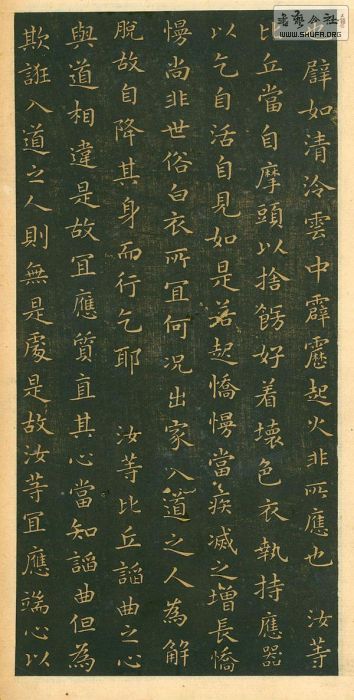 譬如清泠雲中霹靂起火非所應也 汝等
比丘當自摩頭以捨餝好着壞色衣執持應器
以乞自活自見如是若起憍慢當疾滅之增長憍
慢尚非世俗白衣所冝何况出家入道之人為解
脫故自降其身而行乞耶 汝等比丘諂曲之心
與道相違是故冝應質直其心當知諂曲但為
欺誑入道之人則無是處是故汝等冝應端心以
WWW.SHUFA.ORG